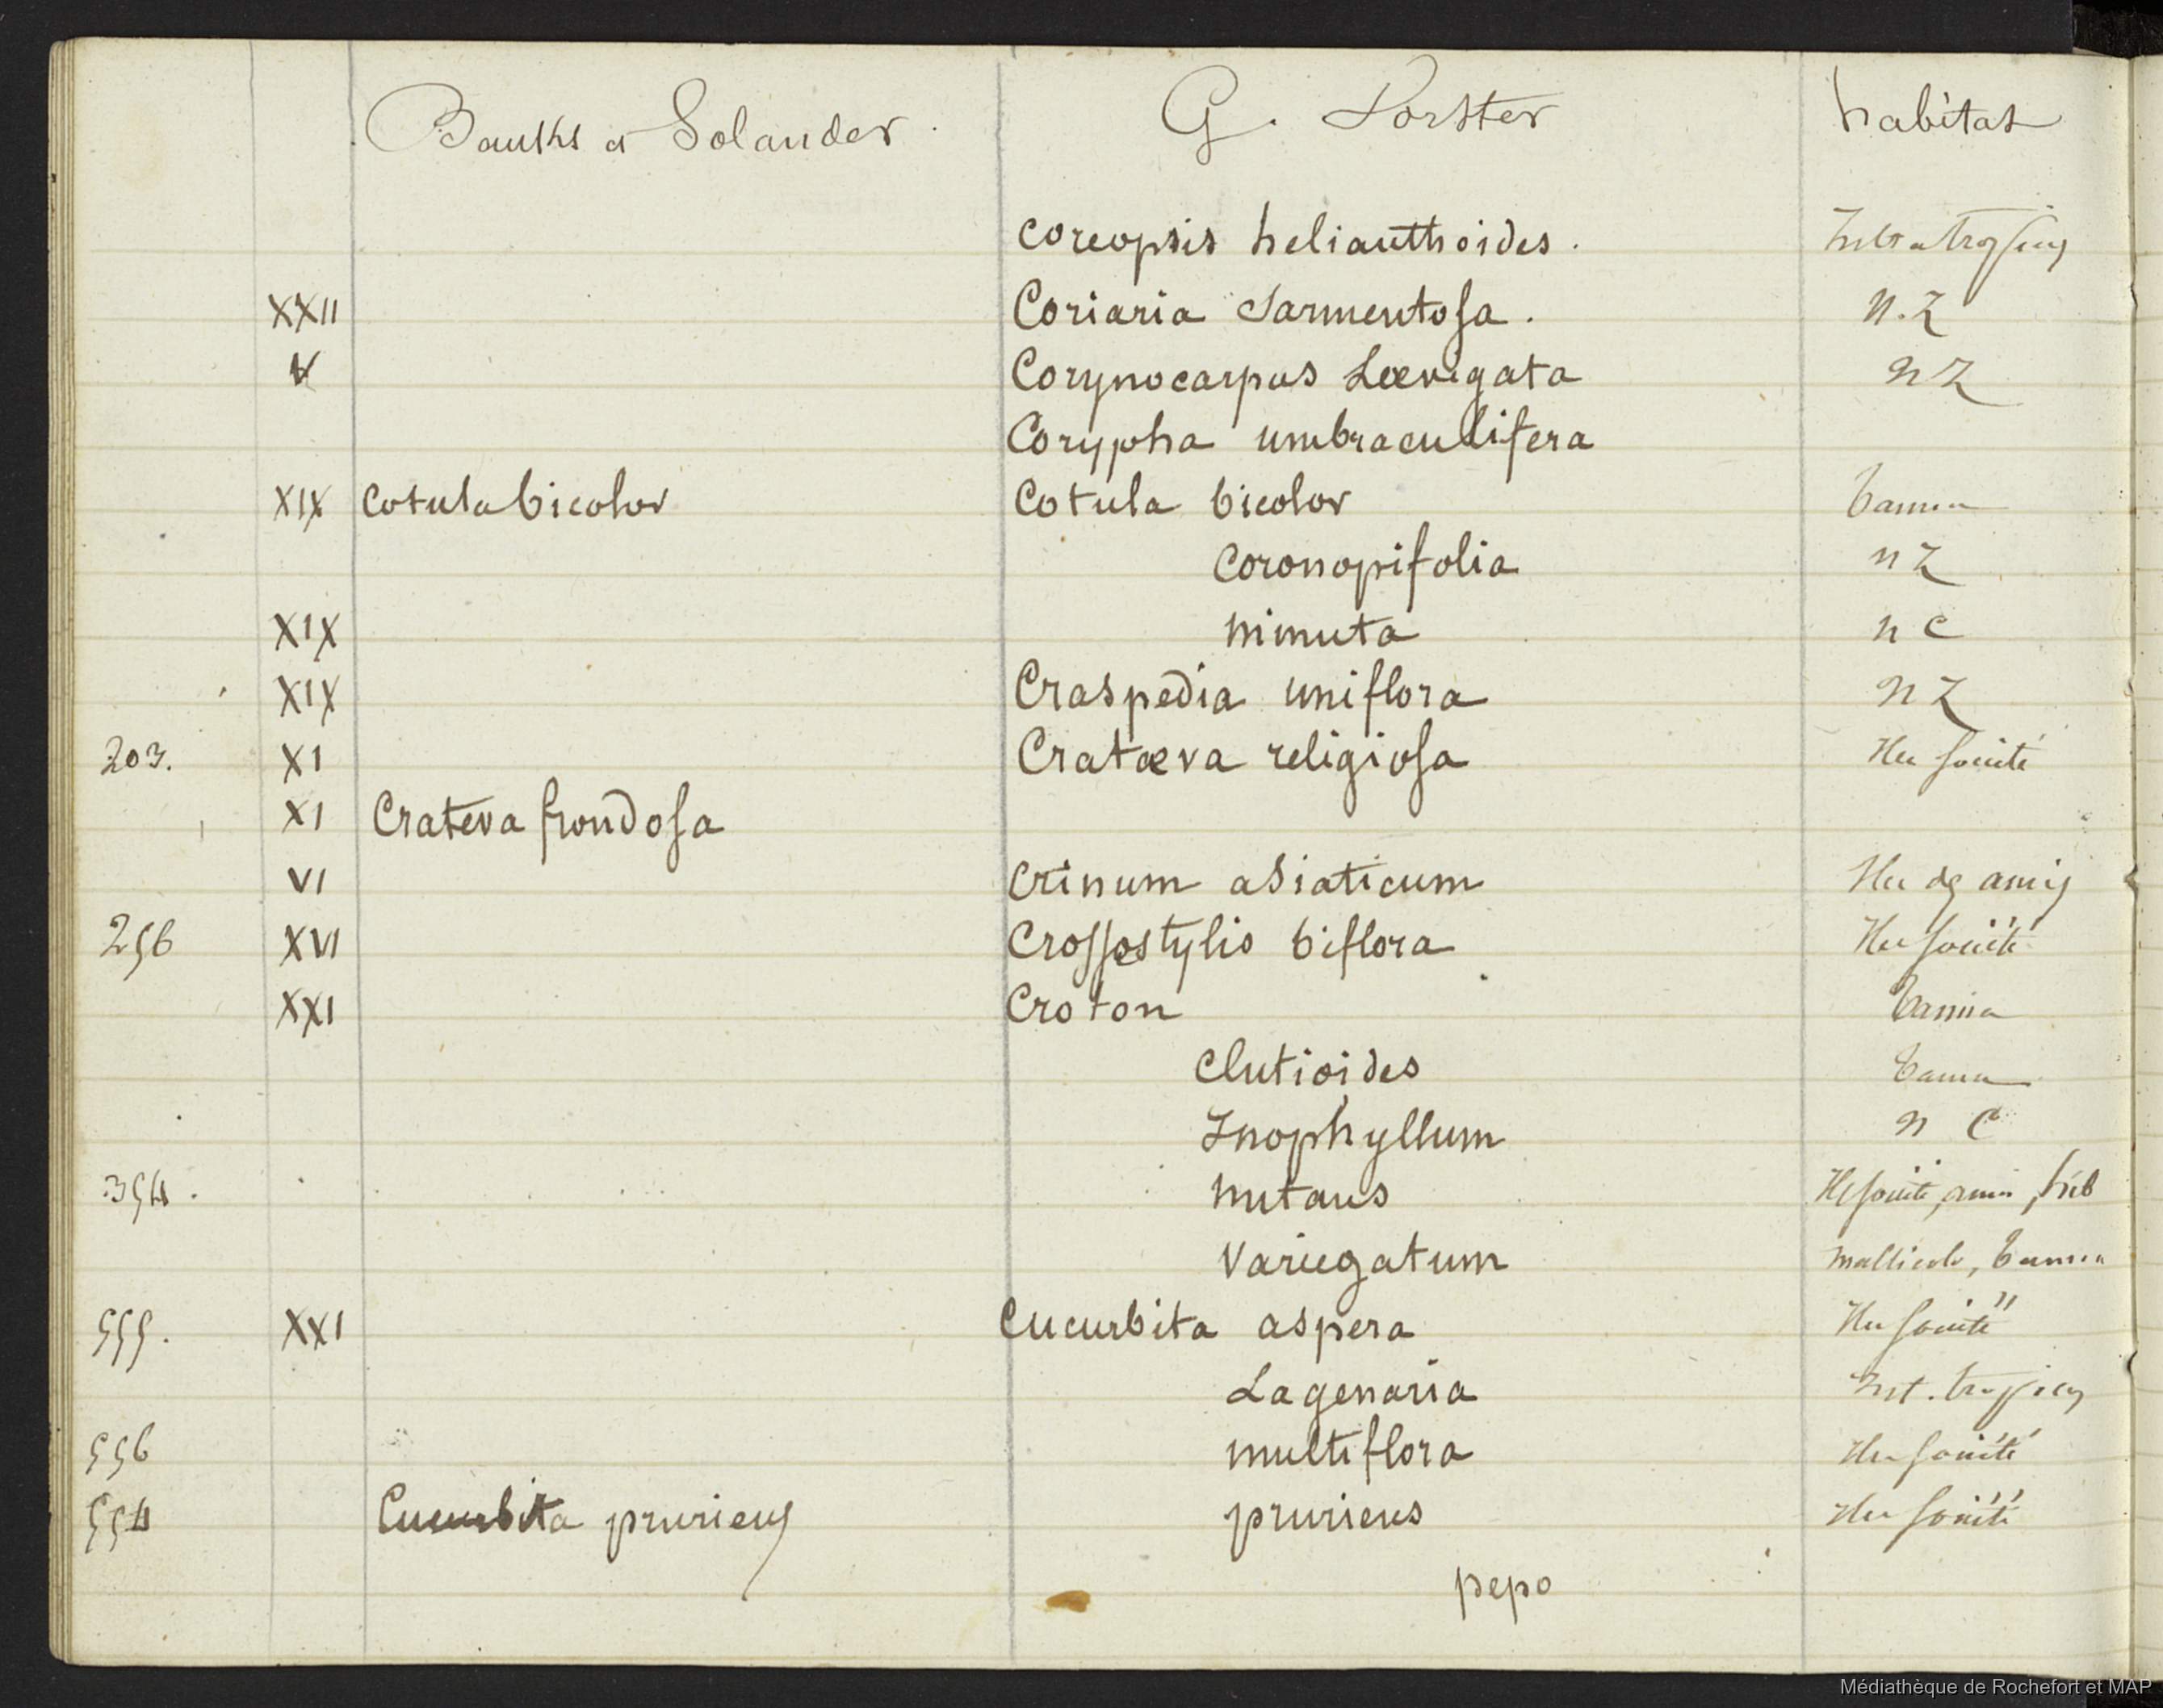 Banks et Solander. G. Forster habitat
Coreopsis helianthoides.
XXII Coriaria Sarmentosa. N.Z
V Corynocarpus Lævigata N Z
Corypha umbraculifera
XIX Cotula bicolor Cotula bicolor Tanna
Coronopifolia N Z
XIX minuta N C
XIX Craspedia uniflora N Z
203. XI Cratæva religiosa Iles Société
XI Crateva frondosa
VI Crinum asiaticum Iles des amis
256 XVI Crossostylis biflora Iles Société
XXI Croton Tanna
Clutioides Tanna
Inophyllum N C
354. nutans Iles Société, amis,
Variegatum mallicolo, Tanna
555. XXI Cucurbita aspera Iles Société
Lagenaria Int. tropiques
556 multiflora Iles Société
554 Cucurbita pruriens pruriens Iles Société
pepo
Médiathèque de Rochefort et MAP